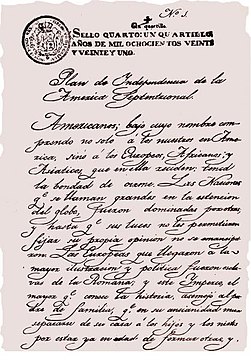 Nº 1.
Un quartillo
SELLO QUARTO: UN QUARTILLO
AÑOS DE MIL OCHOCIENTOS VEINTE
Y VEINTE Y UNO.
Plan de Independencia de la
America Septentrional.
Americanos, bajo cuyo nombre com
prendo no solo á los nacidos en Ame
rica, sino á los Europeos, Africanos, y
Asiaticos que en ella residen: tened
la bondad de oirme. Las Naciones
que se llaman grandes en la estension
del globo, fueron dominadas por otras;
y hasta que sus luces no les permitieron
fijar su propia opinion no se emancipa
ron. Las Europeas que llegaron á la
mayor ilustracion y politica fueron escla
vas de la Romana; y este Imperio, el
mayor que conoce la historia, asemejó al pa
dre de familias, que en su ancianidad mira
separarse de su casa á los hijos y los nietos
por estar ya en edad de formar otras, y